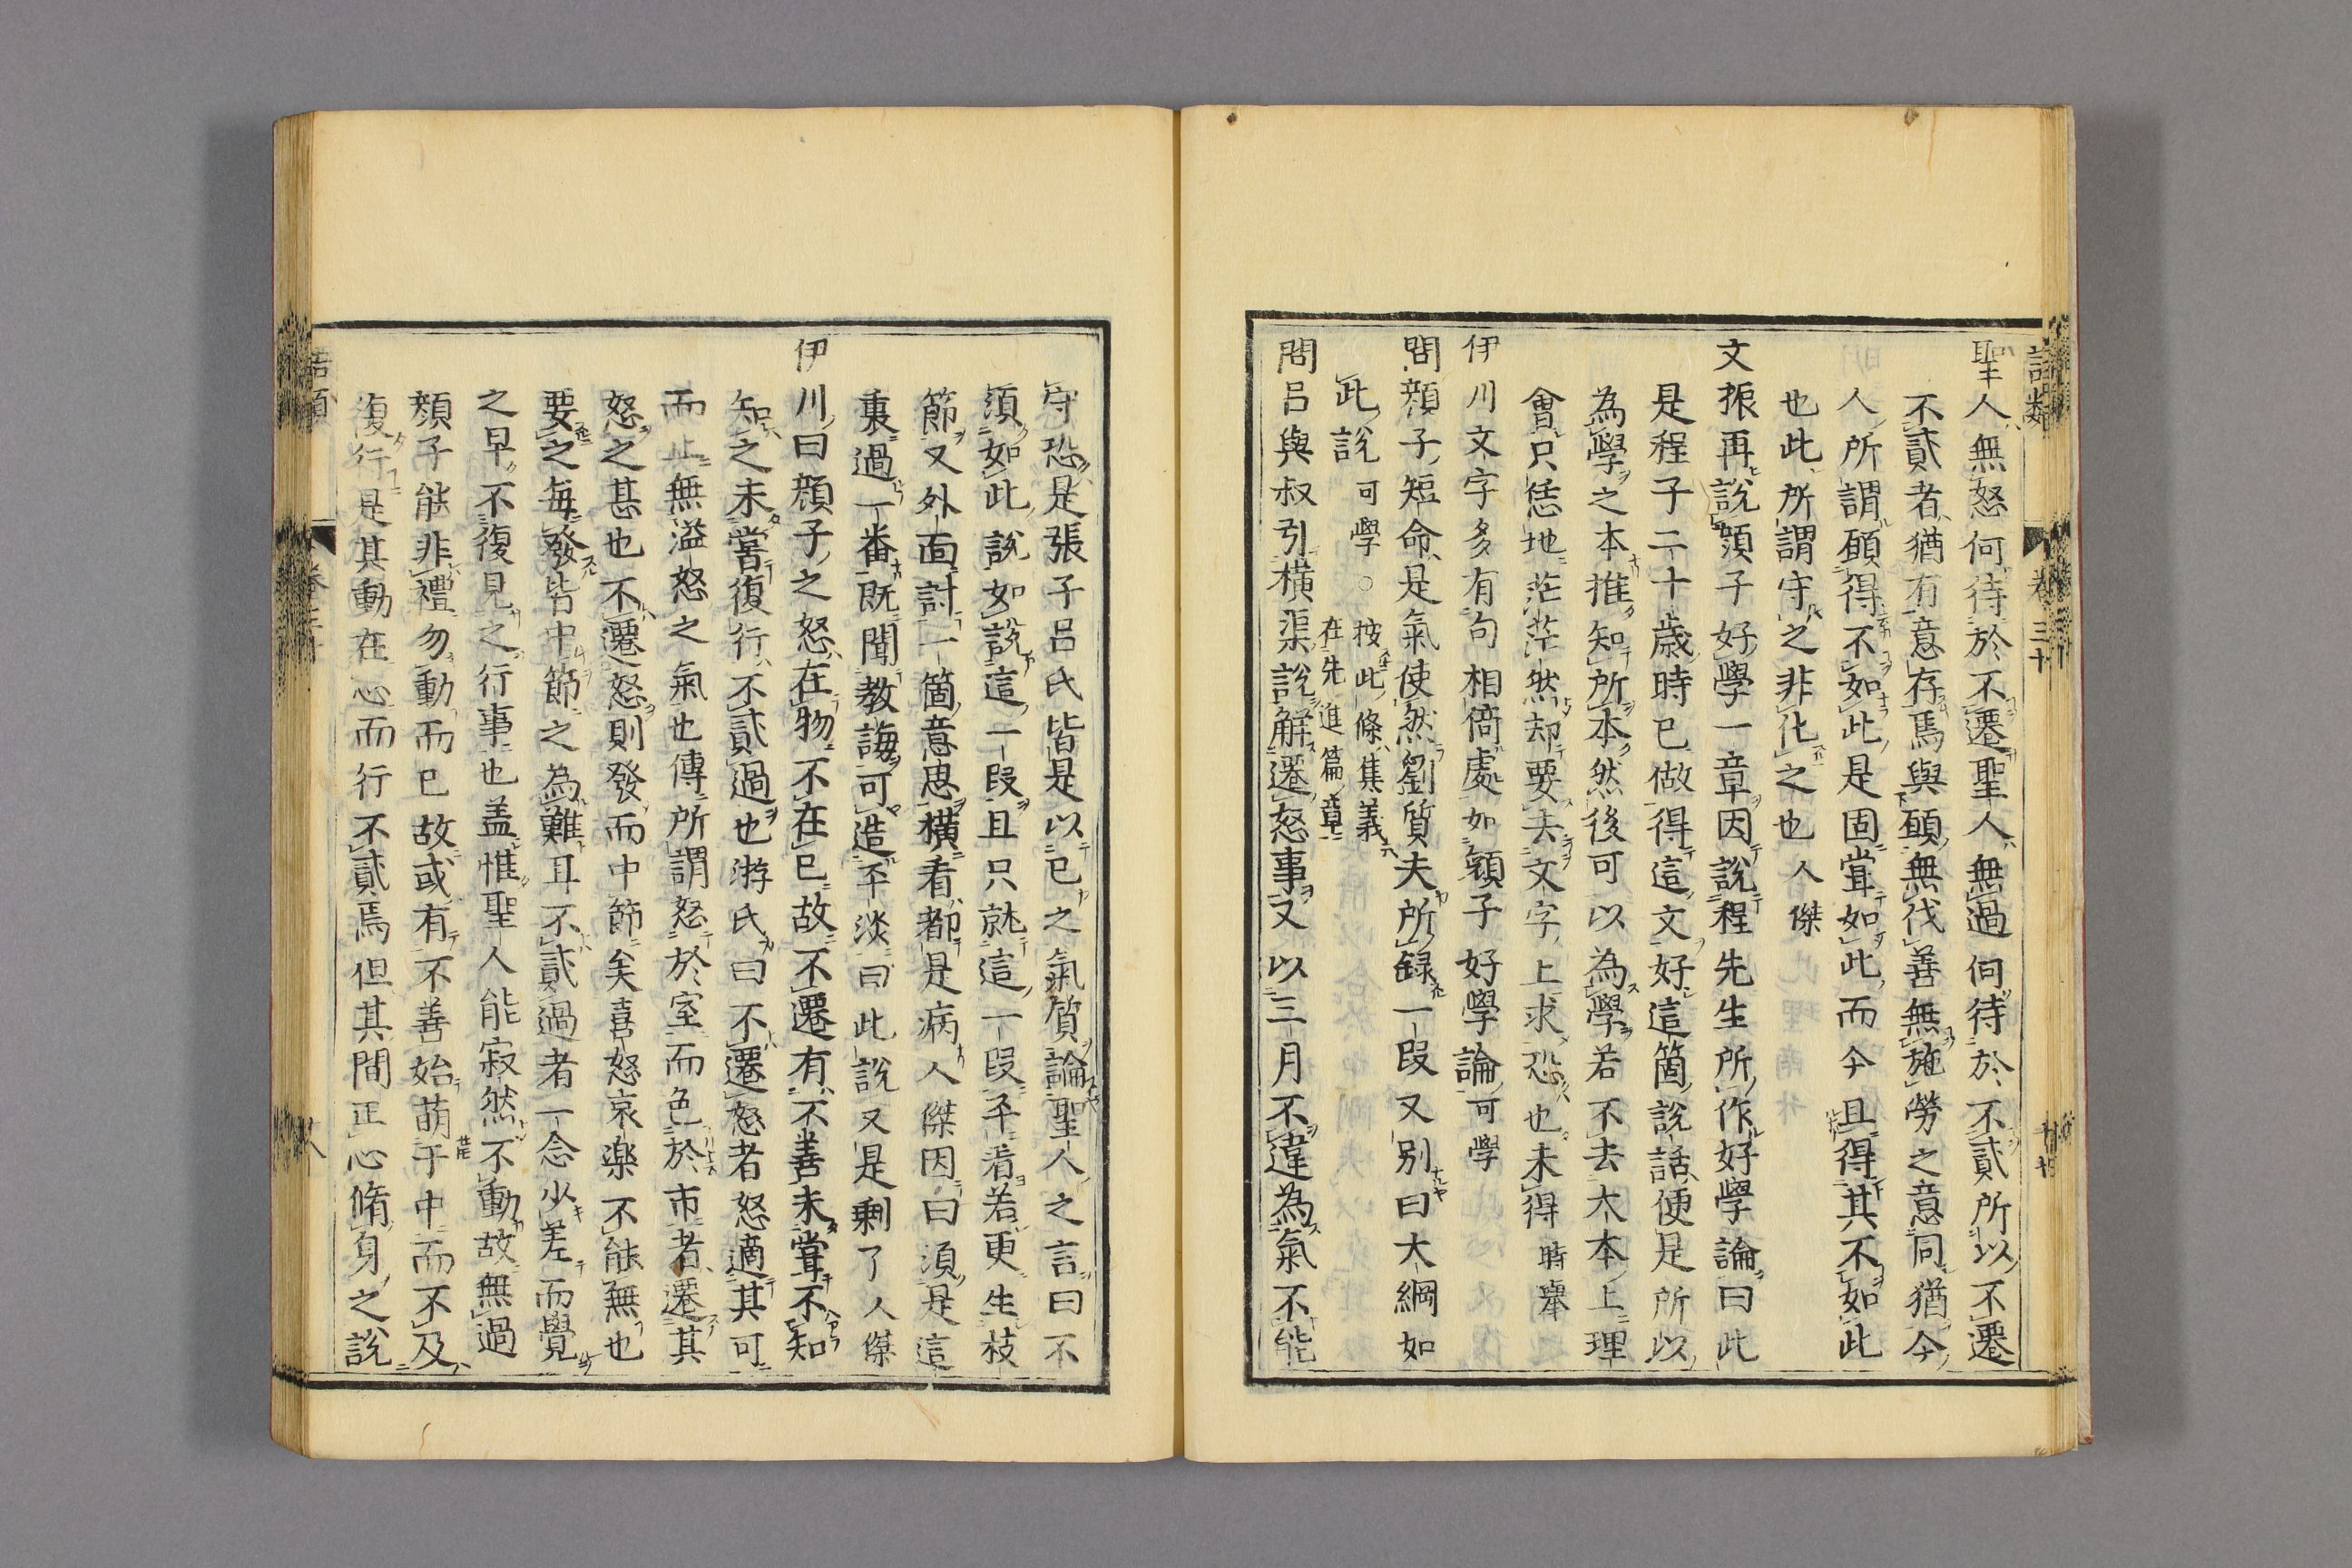 語類 卷三十
聖人無怒何待於不遷聖人無過何待於不貳所以不遷
不貳者猶有意存焉與願無伐善無施勞之意同猶今
人所謂願得不如此是固甞如此而今且得其不如此
也此所謂守之非化之也人傑
文振再說顔子好學一章因說程先生所作好學論曰此
是程子二十歲時已做得這文好這箇說話便是所以
為學之本惟知所本然後可以為學若不去大本上理
會只恁地茫茫然却要去文字上求恐也未得時舉
伊川文字多有句相倚處如顔子好學論可學
問顔子短命是氣使然劉質夫所録一段又別曰大綱如
此說可學○按此條集義在先進篇章
問呂與叔引橫渠說解遷怒事又以三月不違為氣不能
守恐是張子呂氏皆是以己之氣質論聖人之言曰不
須如此說如說這一段且只就這一段平看若更生枝
節又外面討一箇意思橫看都是病人傑因曰須是這
裏過一番既聞教誨可造平淡曰此說又是剩了人傑
伊川曰顔子之怒在物不在己故不遷有不善未甞不知
知之未甞復行不貳過也游氏曰不遷怒者怒適其可
而止無溢怒之氣也傳所謂怒於室而色於市者遷其
怒之甚也不遷怒則發而中節矣喜怒哀楽不能無也
要之毎發皆中節之為難耳不貳過者一念少差而覺
之早不復見之行事也盖惟聖人能寂然不動故無過
顔子能非禮勿動而已故或有不善始萌于中而不及
復行是其動在心而行不貳焉但其間正心脩身之說
語類